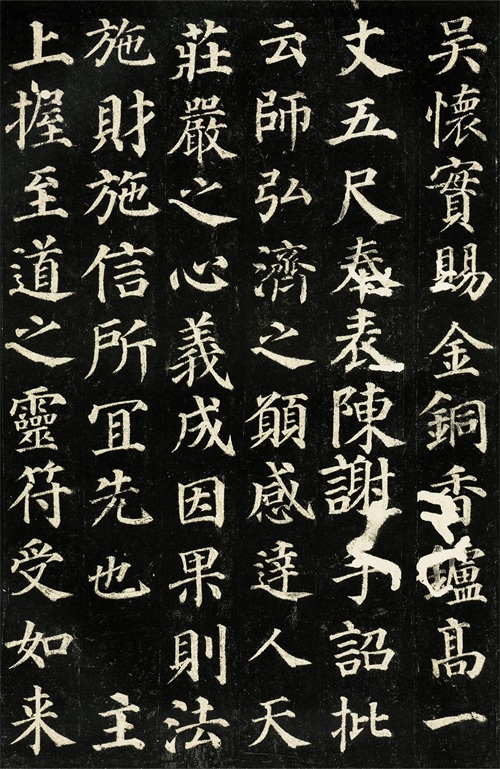 吴懷實賜金銅香鑪髙一
丈五尺奉表陳謝手詔批
云師弘濟之願感達人天
莊嚴之心義成因果則法
施財施信所冝先也　主
上握至道之靈符受如来